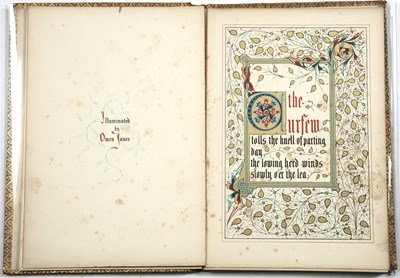 Illuminated
by
Owen Jones
the
Curfew
tolls the knell of parting
day,
the lowing herd winds
slowly o'er the lea: